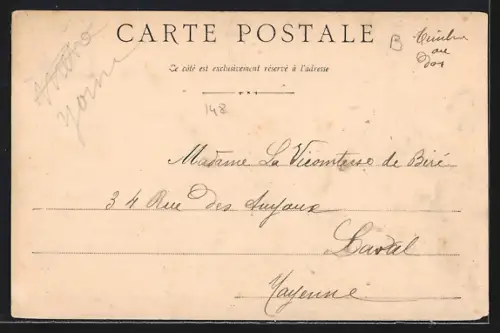 CARTE POSTALE
Ce côté est exclusivement réservé à l'adresse
B
Timbre
au
dos
148
Madame La Vicomtesse de Biré
34 Rue des
Laval
Mayenne